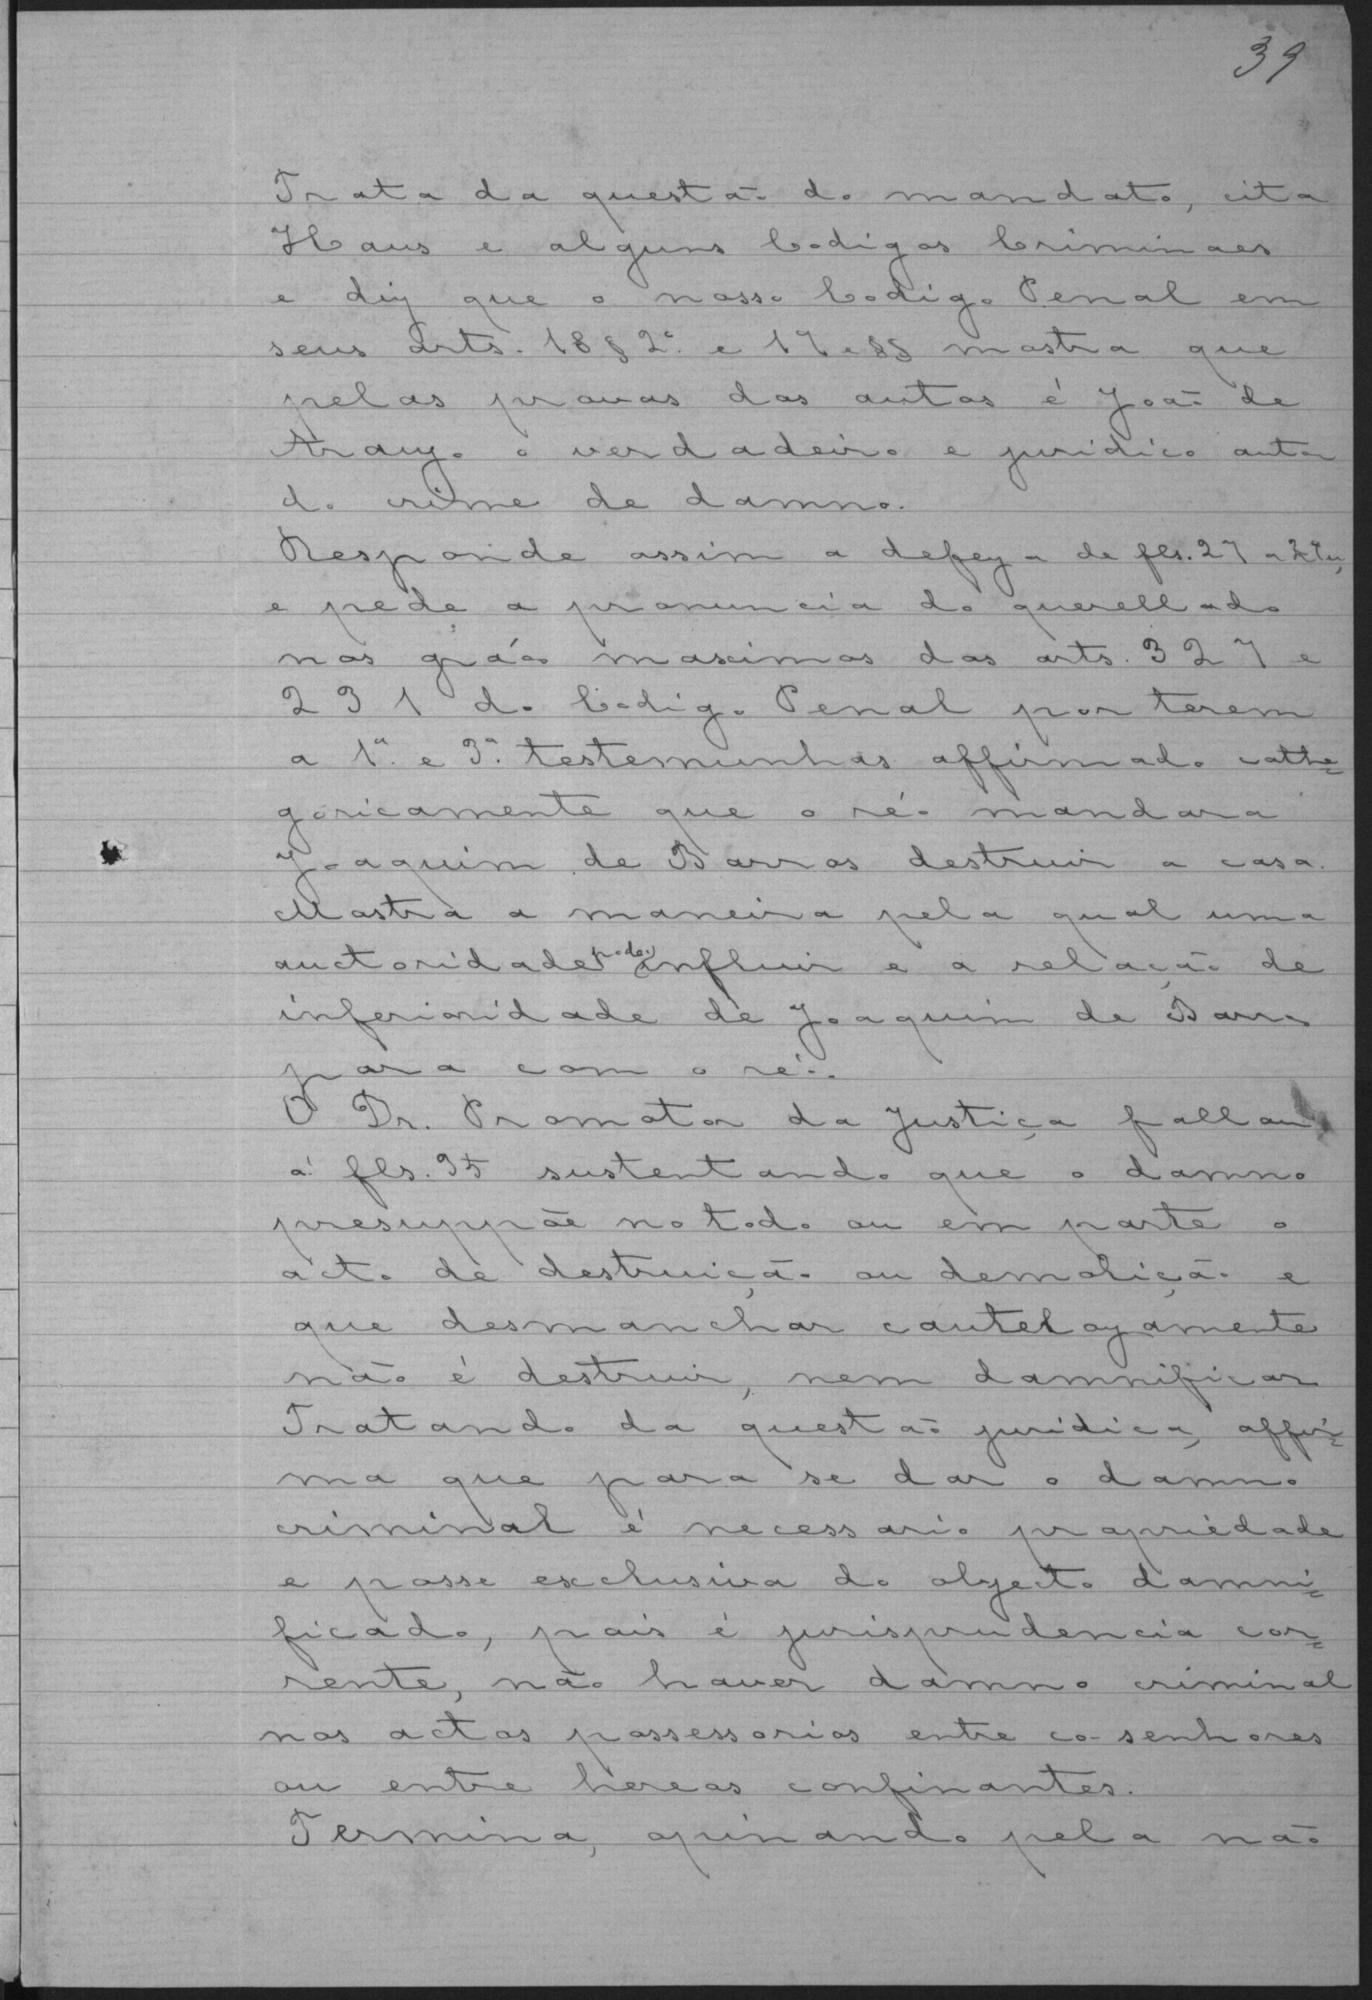 39
Trata da questão do mandato, cita
Haus e alguns Codigos Criminaes
e diz que o nosso Codigo Penal em
seus arts. 18 § 2º e 19 e §§ mostra que
pelas provas dos autos é João de
Araujo o verdadeiro e juridico autor
do crime de damno.
Responde assim a defeza de fls. 27 a
e pede a pronuncia do querellado
nos gráos maximos dos arts. 327 e
231 do Codigo Penal por terem
a 1ª e 3ª testemunhas affirmado cathe=
goricamente que o réo mandara
Joaquim de Barros destruir a casa.
Mostra a maneira pela qual uma
auctoridade pode influir e a relação de
inferioridade de Joaquim de Barros
para com o réo.
O Dr. Promotor da Justiça fallou
á fls. 35 sustentando que o damno
presuppõe no todo ou em parte o
acto de destruição ou demolição e
que desmanchar cautelozamente
não é destruir, nem damnificar
Tratando da questão juridica, affir=
ma que para se dar o damno
criminal é necessario propriedade
e posse exclusiva do objecto damni=
ficado, pois é jurisprudencia cor=
rente, não haver damno criminal
nos actos possessorios entre co-senhores
ou entre hereos confinantes.
Termina, opinando pela não